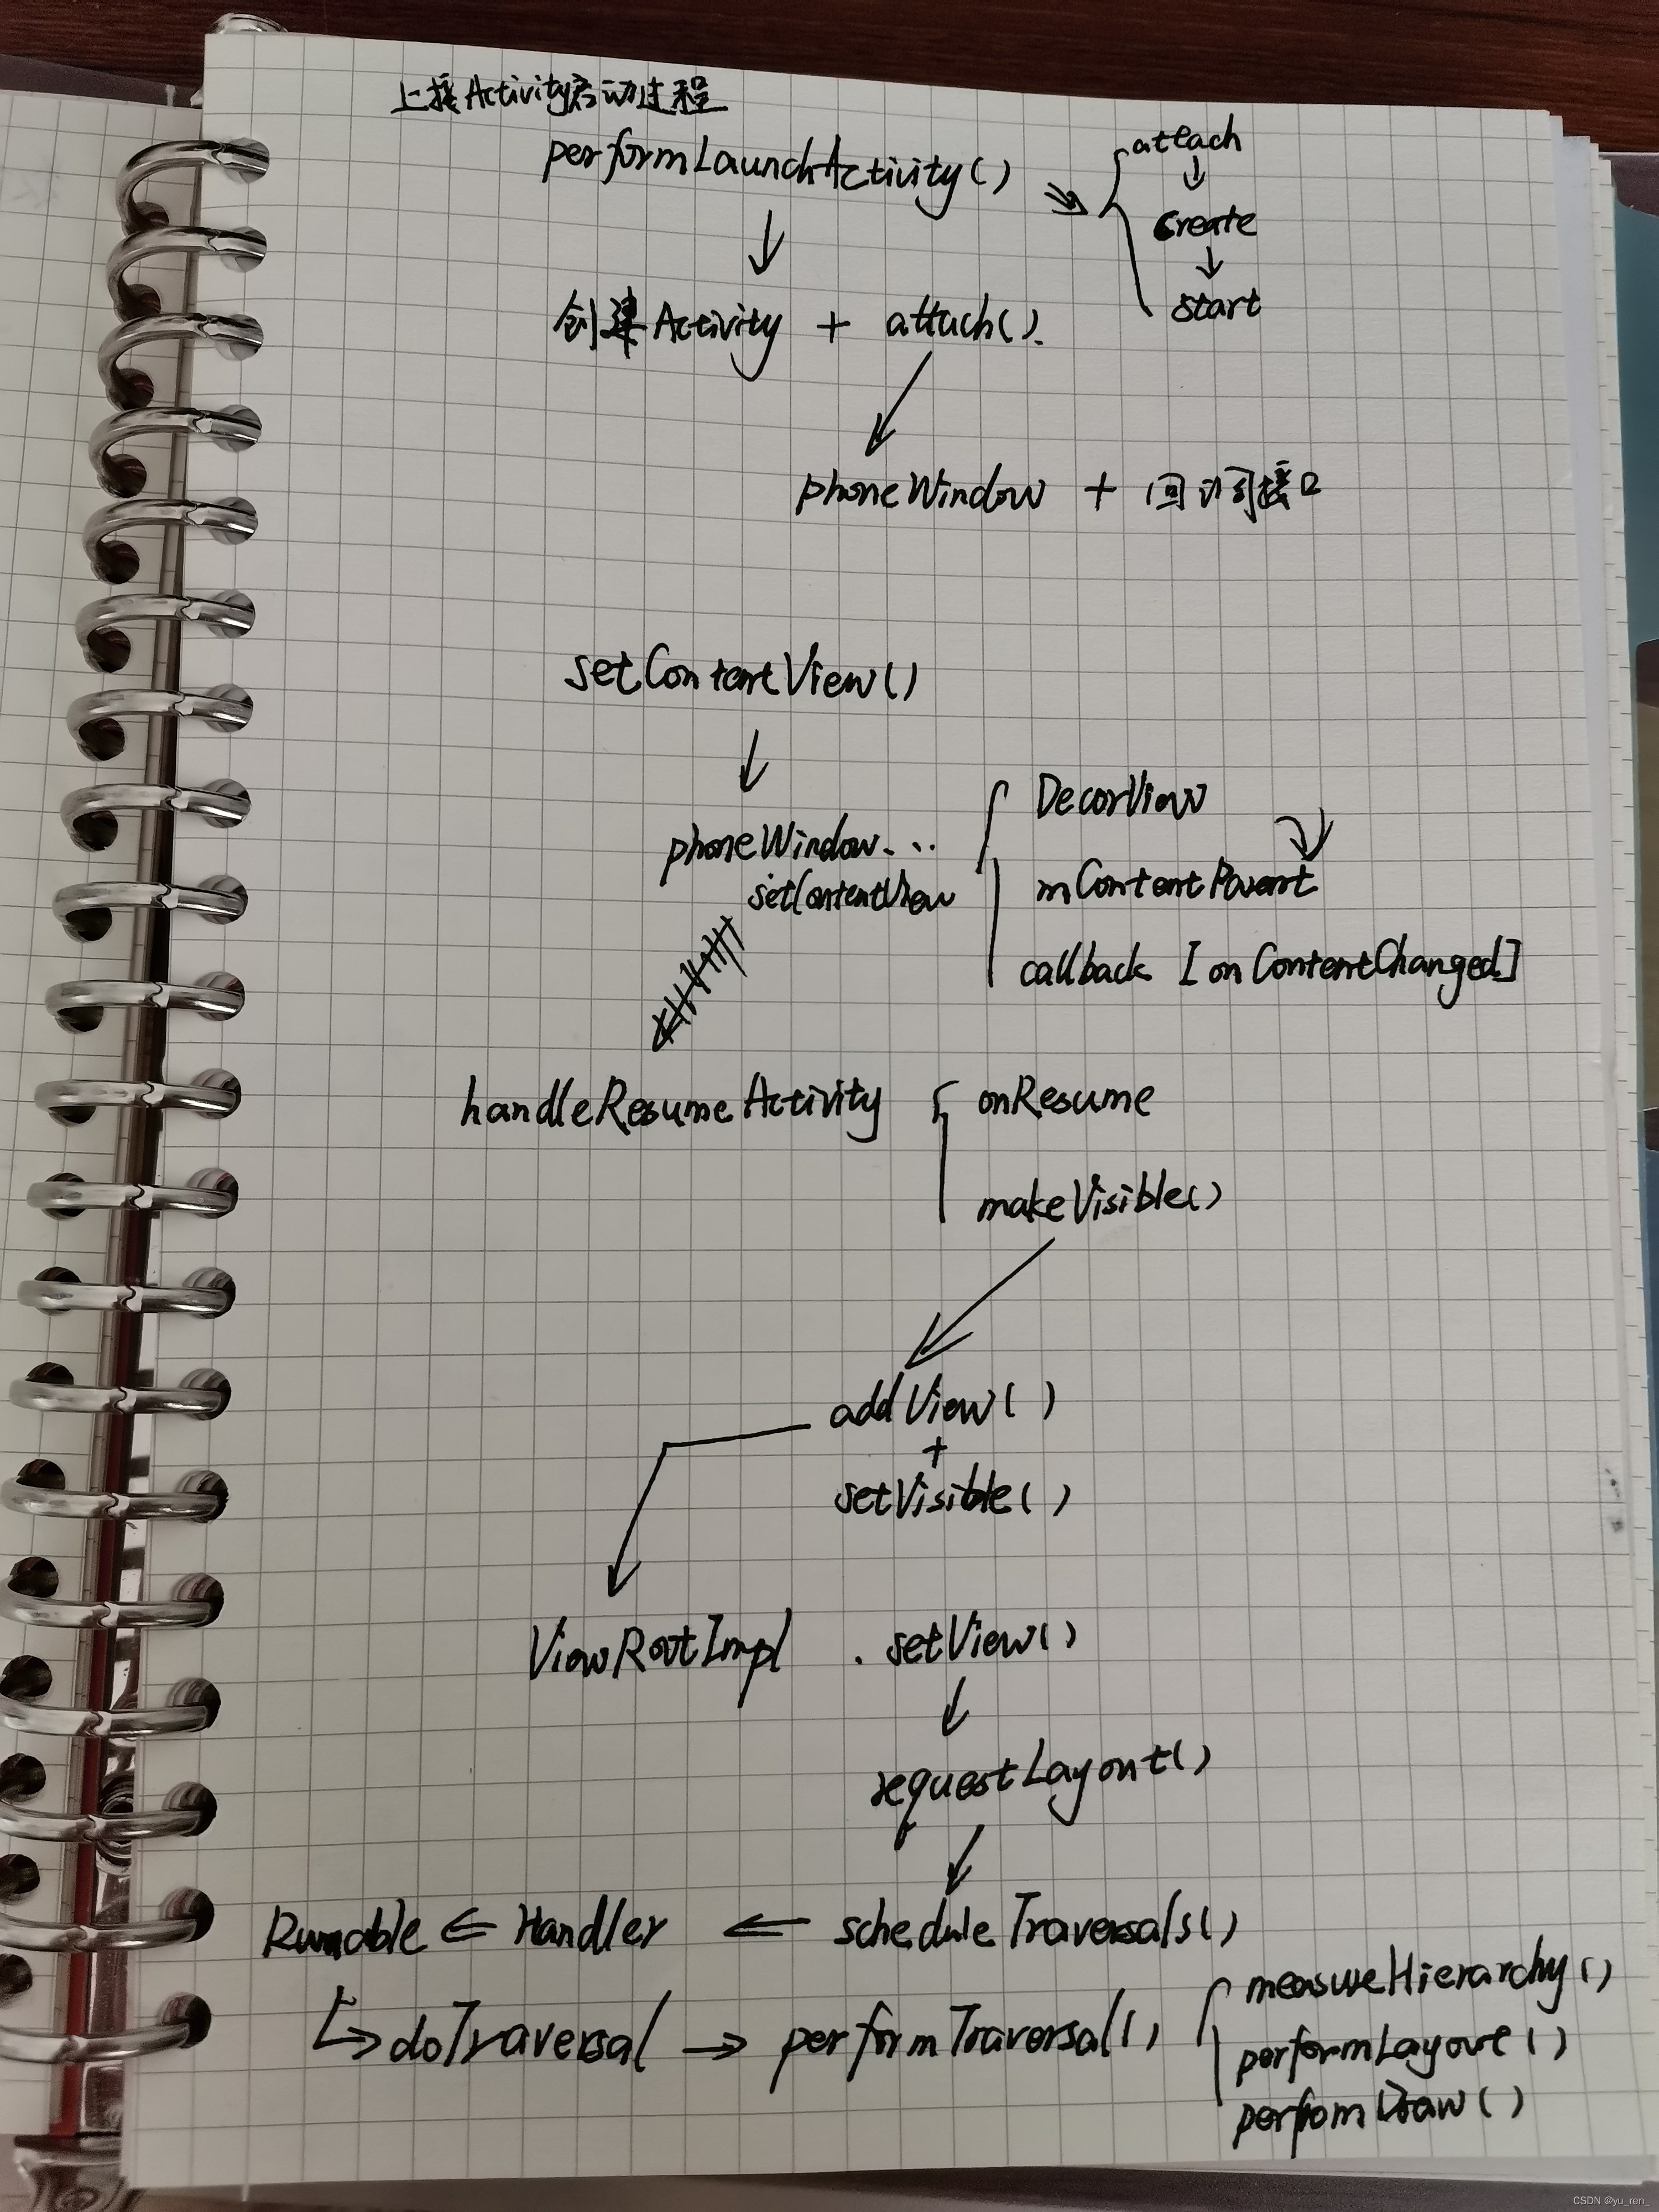 上接Activity启动过程
performLaunchActivity()
attach
create
start
创建Activity + attach().
phoneWindow + 回调接口
setContentView()
phoneWindow...
setContentView
DecorView
mContentParent
callback [onContentChanged]
handleResumeActivity
onResume
makeVisible()
addView()
+
setVisible()
ViewRootImpl . setView()
requestLayout()
Runnable ⇐ Handler ⇐ scheduleTraversals()
doTraversal → performTraversal()
measureHierarchy()
performLayout()
performDraw()
CSDN @yu_ren_